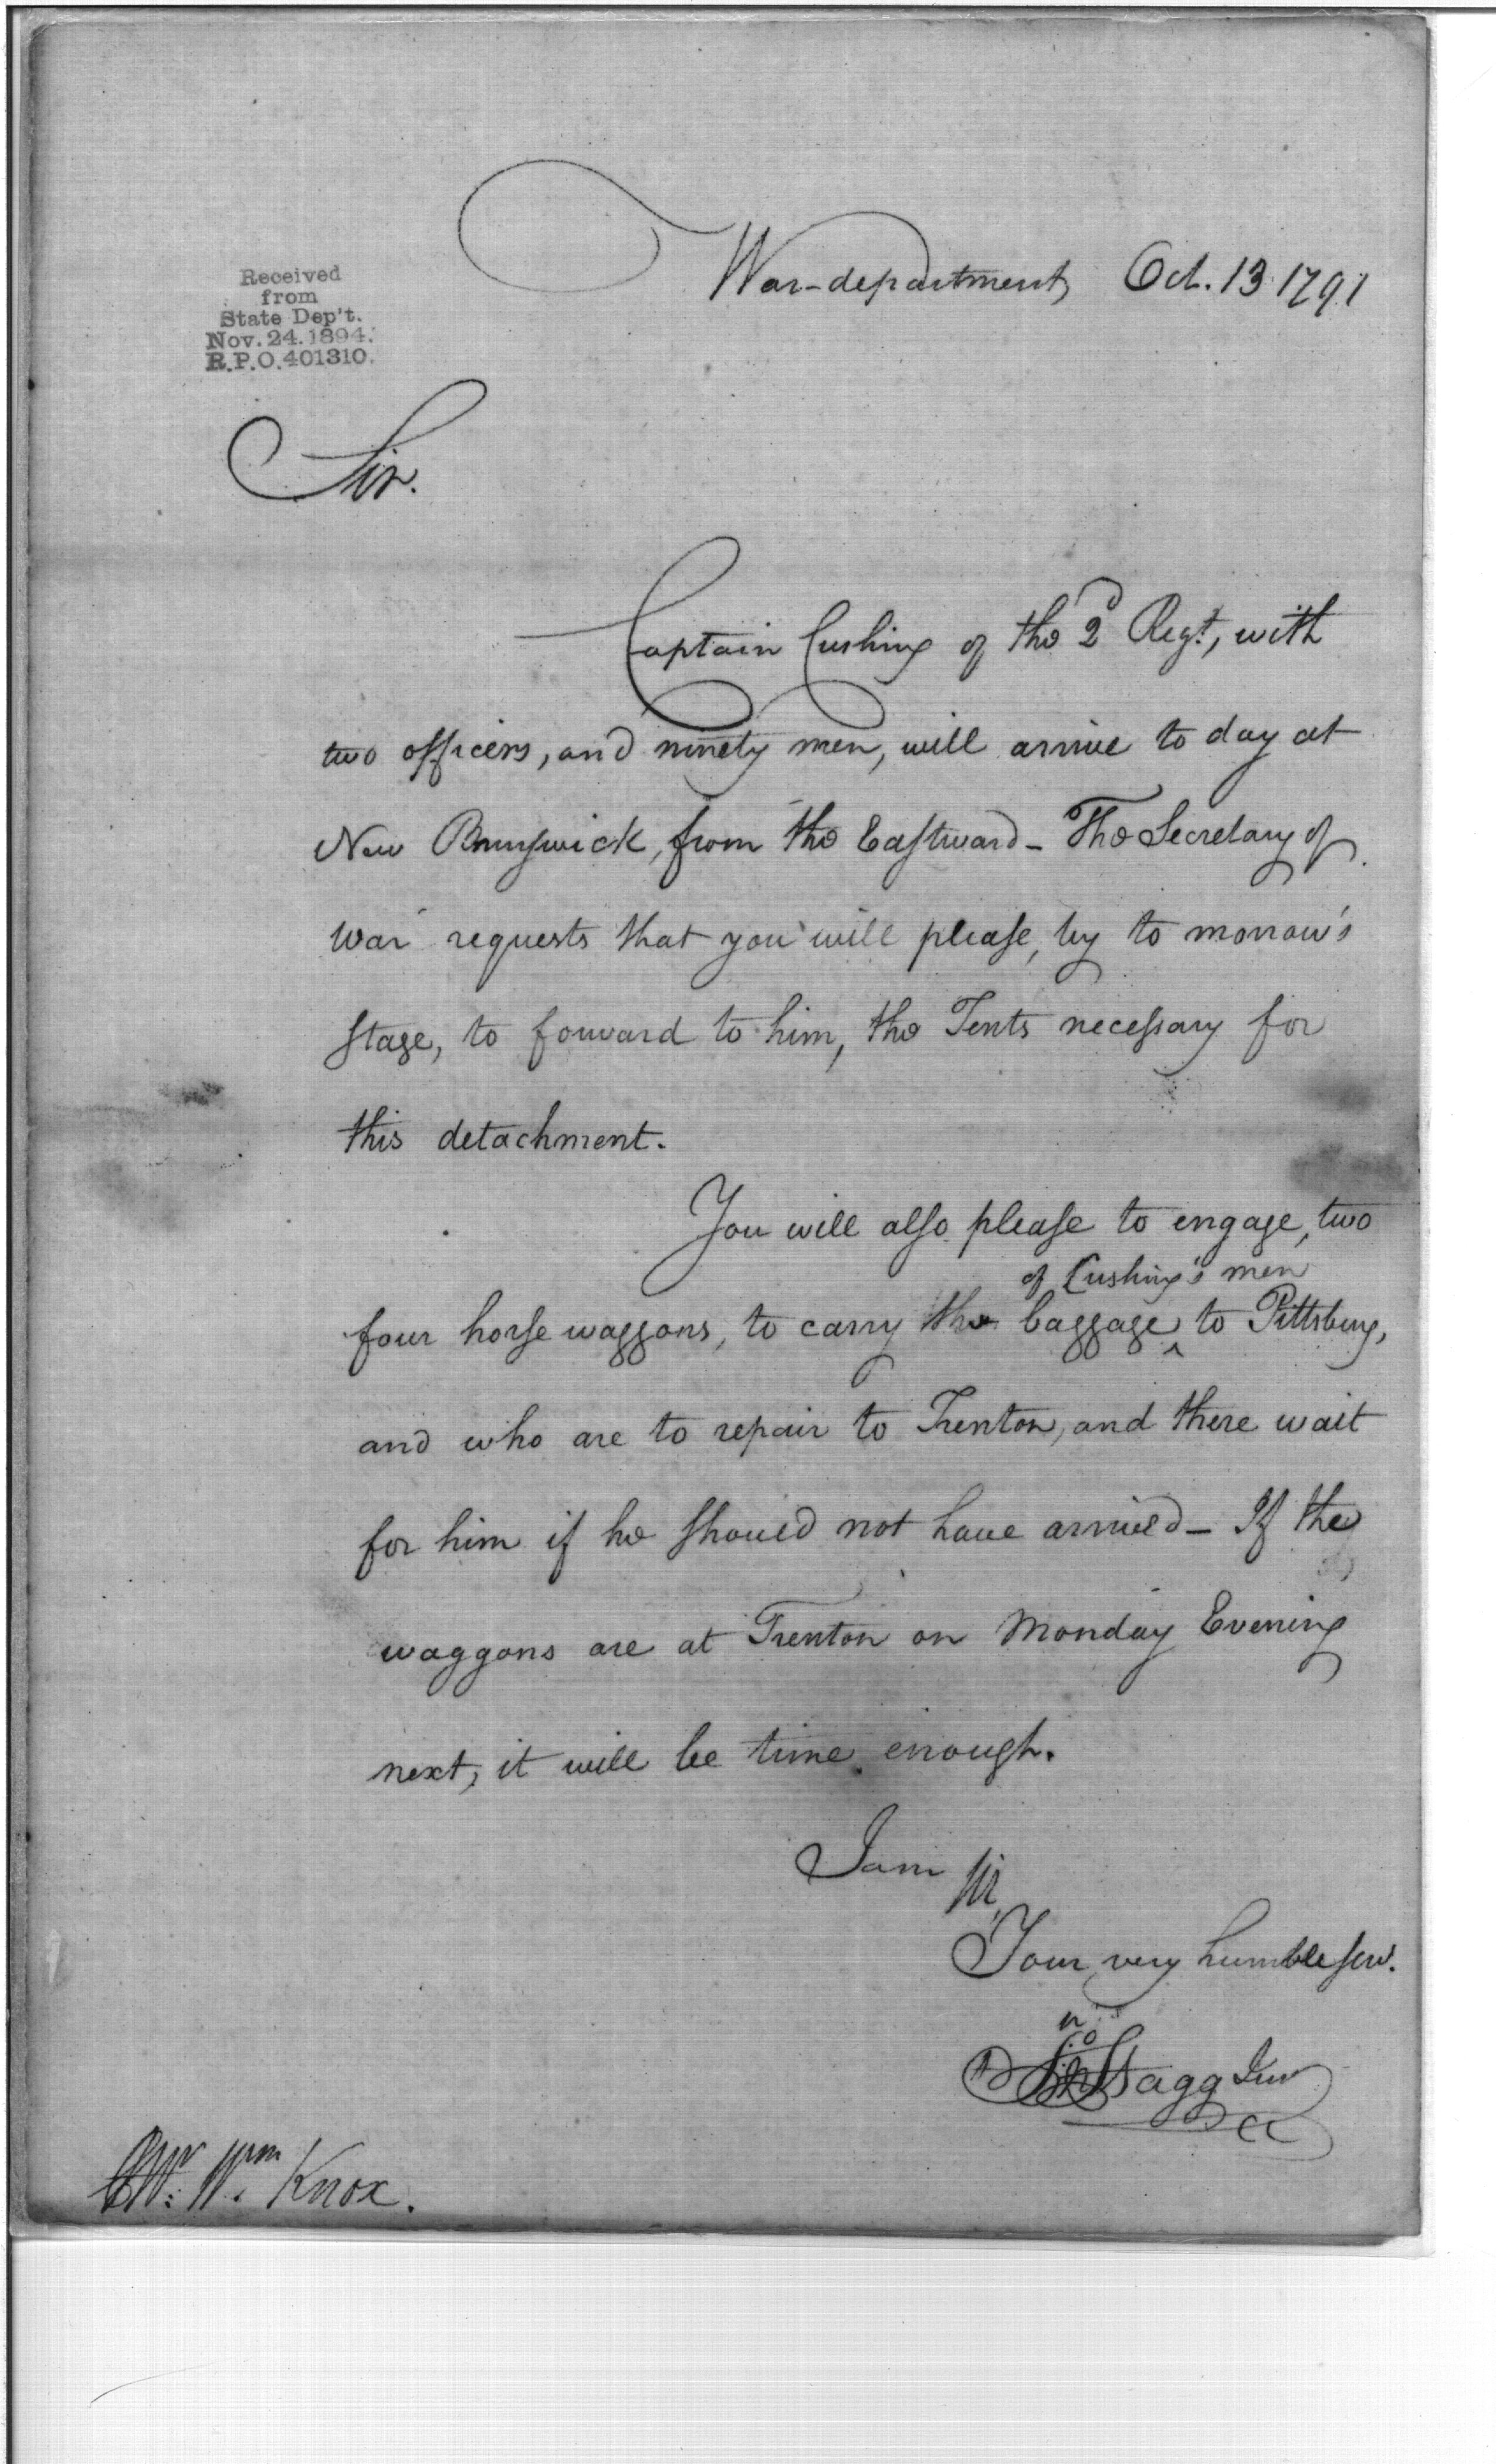 War-department, Oct. 13 1791
Received
from
State Dep't.
Nov. 24. 1894.
R.P.O. 401310.
Sir.
Captain Cushing of the 2d Regt, with
two officers, and ninety men, will arrive to day at
New Brunswick, from the Eastward - The Secretary of
War requests that you will please, by to morrow's
stage, to forward to him, the Tents necessary for
this detachment.
You will also please to engage, two
of Cushing's men
four horse waggons, to carry the baggage ^ to Pittsburg,
and who are to repair to Trenton, and there wait
for him if he should not have arrived - If the
waggons are at Trenton on Monday Evening
next, it will be time enough.
I am Sir,
Your very humble serv.
Stagg Junr
Mr. Wm Knox.